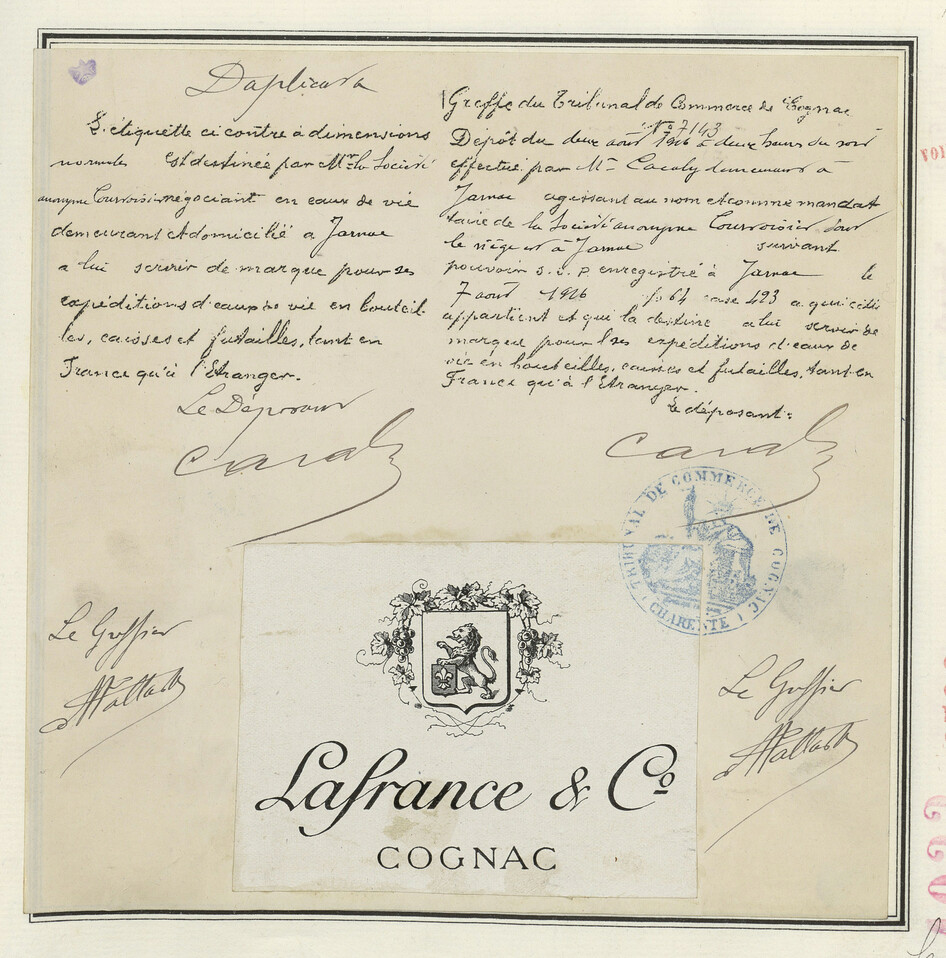 Duplicata
L'étiquette ci contre à dimensions
normales est destinée par Mr la Société
anonyme Courvoisier négociant en eaux de vie
demeurant et domicilié a Jarnac
a lui servir de marque pour ses
expéditions d'eaux de vie en bouteil
les, caisses et futailles, tant en
France qu'à l'Etranger.
Le Déposant
Le Greffier
Greffe du Tribunal de Commerce de Cognac
No 7143
Dépôt du deux août 1926 à deux heures du soir
effectué par Mr demeurant à
Jarnac agissant au nom et comme mandat
taire de la Société anonyme Courvoisier dont
le siège est à Jarnac suivant
pouvoir s.s.p enregistré à Jarnac le
7 août 1926 fo 64 case 423 a qui celle
appartient et qui la destine a lui servir de
marque pour ses expéditions d'eaux de
vie en bouteilles, caisses et futailles, tant en
France qu'à l'Etranger.
Le déposant:
TRIBUNAL DE COMMERCE DE COGNAC
(CHARENTE)
Le Greffier
Lafrance & Co
COGNAC